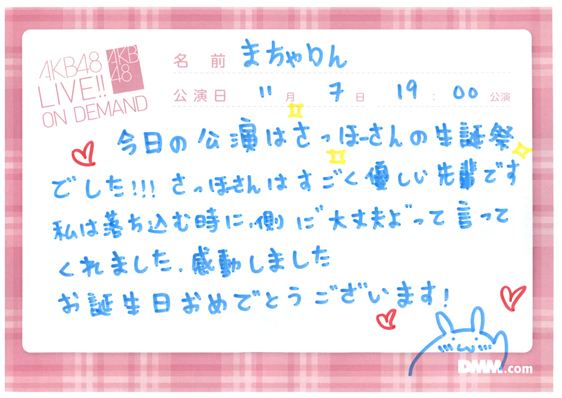 AKB48
LIVE!!
ON DEMAND
AKB
48
名前 まちゃりん
公演日 11月7日 19:00公演
今日の公演はさっほーさんの生誕祭
でした!!! さっほさんはすごく優しい先輩です
私は落ち込む時に、側に大丈夫よって言って
くれました、感動しました
お誕生日おめでとうございます!
DMM.com